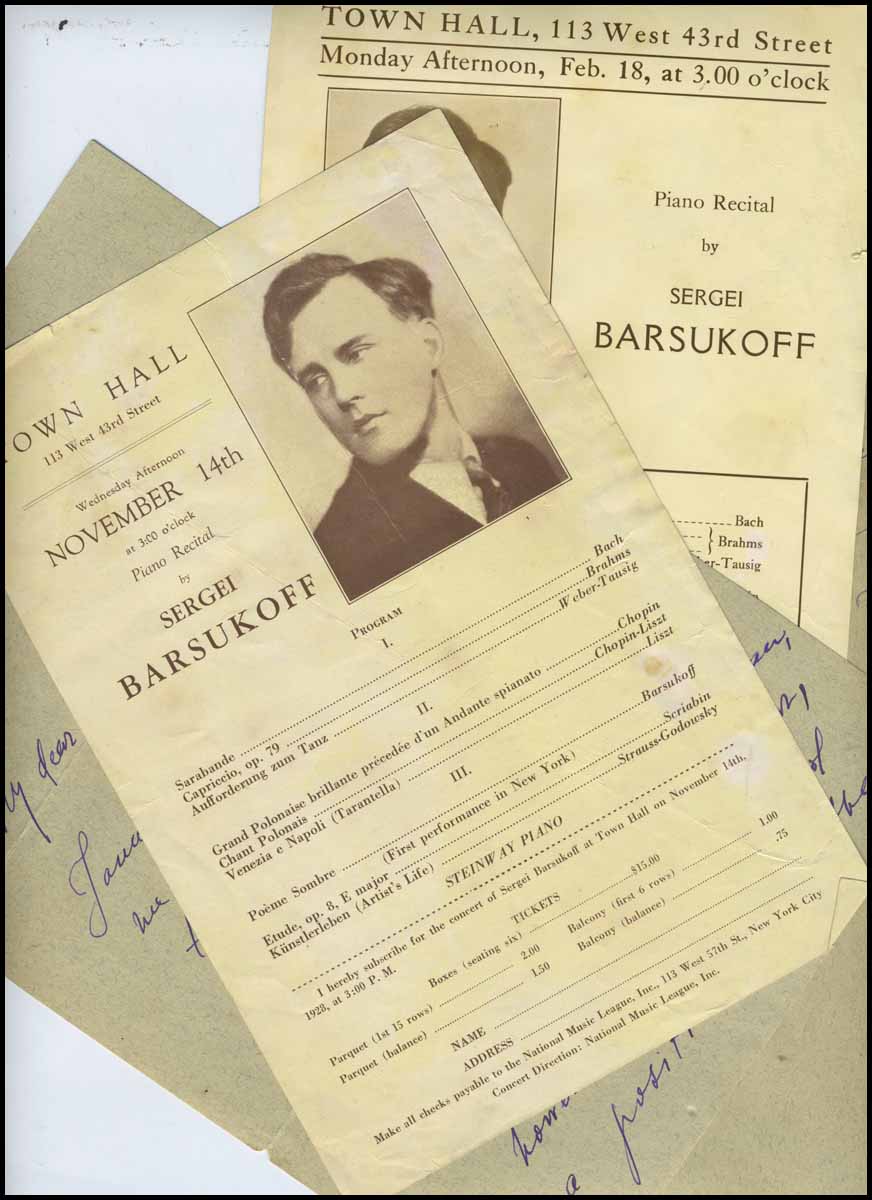 TOWN HALL, 113 West 43rd Street
Monday Afternoon, Feb. 18, at 3.00 o'clock
Piano Recital
by
SERGEI
BARSUKOFF
Bach
Brahms
er-Tausig
TOWN HALL
113 West 43rd Street
Wednesday Afternoon
NOVEMBER 14th
at 3:00 o'clock
Piano Recital
by
SERGEI
BARSUKOFF
PROGRAM
I.
Sarabande Bach
Capriccio, op. 79 Brahms
Aufforderung zum Tanz Weber-Tausig
II.
Grand Polonaise brillante précedée d'un Andante spianato Chopin
Chant Polonais Chopin-Liszt
Venezia e Napoli (Tarantella) Liszt
III.
Poème Sombre Barsukoff
(First performance in New York)
Etude, op. 8, E major Scriabin
Künstlerleben (Artist's Life) Strauss-Godowsky
STEINWAY PIANO
I hereby subscribe for the concert of Sergei Barsukoff at Town Hall on November 14th,
1928, at 3:00 P. M.
TICKETS
Boxes (seating six) $15.00
Parquet (1st 15 rows) 2.00 Balcony (first 6 rows) 1.00
Parquet (balance) 1.50 Balcony (balance) .75
NAME
ADDRESS
Make all checks payable to the National Music League, Inc., 113 West 57th St., New York City
Concert Direction: National Music League, Inc.
My dear
of
a positi